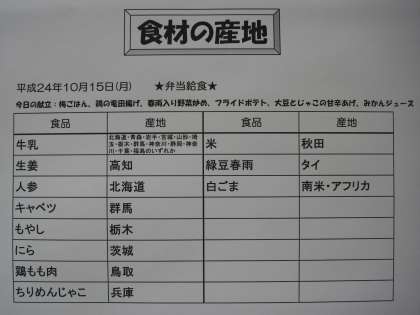 食材の産地
平成24年10月15日(月) ★弁当給食★
今日の献立：梅ごはん、鶏の竜田揚げ、春雨入り野菜炒め、フライドポテト、大豆とじゃこの甘辛あげ、みかんジュース
食品 産地 食品 産地
牛乳 北海道・青森・岩手・宮城・山形・埼玉・栃木・群馬・神奈川・静岡・神奈川・千葉・福島のいずれか 米 秋田
生姜 高知 緑豆春雨 タイ
人参 北海道 白ごま 南米・アフリカ
キャベツ 群馬
もやし 栃木
にら 茨城
鶏もも肉 鳥取
ちりめんじゃこ 兵庫